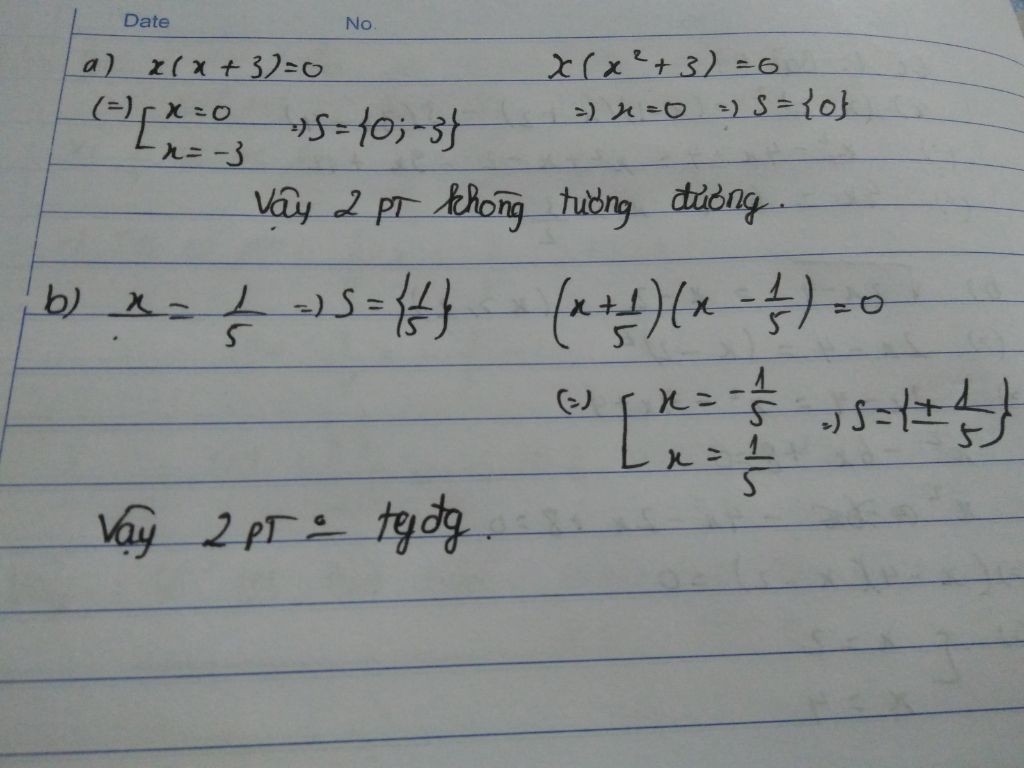 Date No.
a) x(x + 3)=0 x(x² + 3) = 0
(=) [ x = 0 =) S = {0; -3} =) x = 0 =) S = {0}
x = -3
Vậy 2 PT không tương đương.
b) x = 1/5 =) S = {1/5} (x + 1/5)(x - 1/5) = 0
(=) [ x = -1/5 =) S = {± 1/5}
x = 1/5
Vậy 2 PT tgđg.